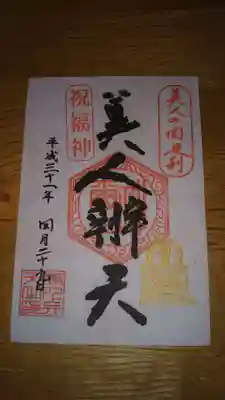 美人の国足利
美人辨天
祝福神
平成三十一年
四月二十九日